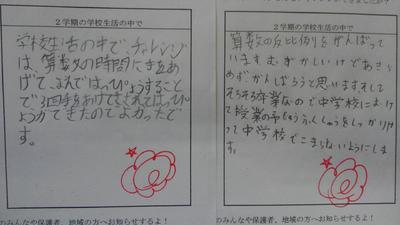 2学期の学校生活の中で
学校生活の中で、チャレンジ
は、算数の時間に手をあ
げて、よんではっぴょうすること
で3回手をあげてさされてはっぴ
ょうができたのでよかったで
す。
のみんなや保護者、地域の方へお知らせするよ！
2学期の学校生活の中で
算数の反比例をがんばって
いますむずかしいけであきら
めずがんばろうと思いますそして
そろそろ卒業なので中学校にむけ
て授業の予しゅうふくしゅうをしっかりや
って中学校でこまらないようにしま
す。
のみんなや保護者、地域の方へお知らせするよ！